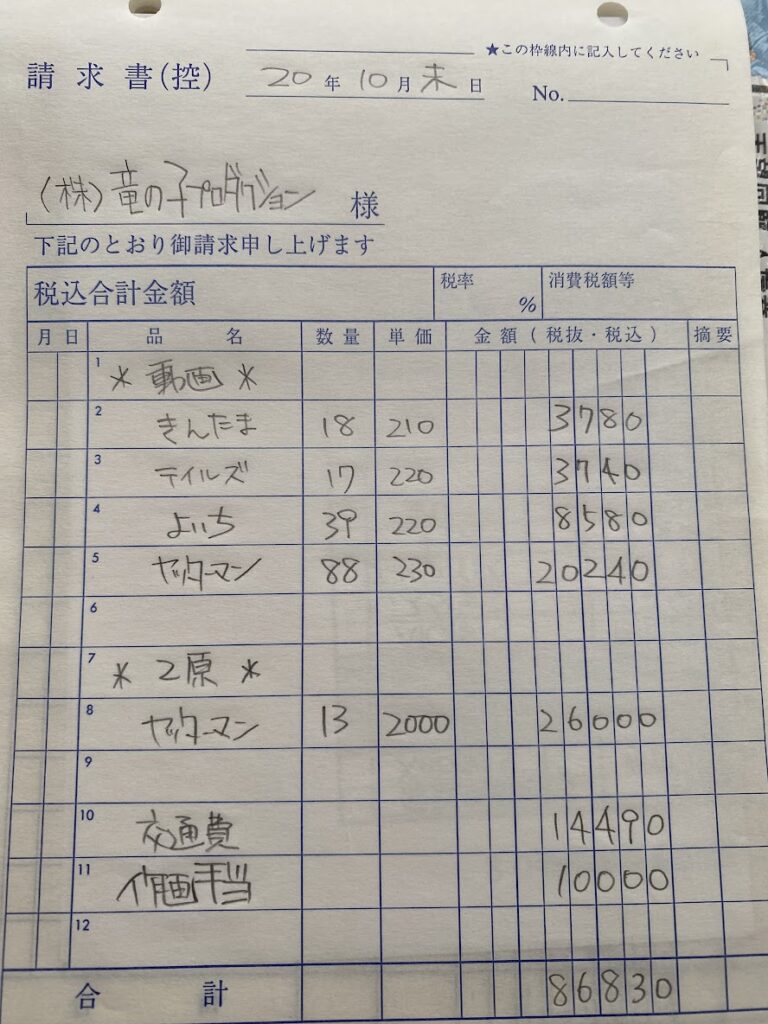 ★この枠線内に記入してください
請求書(控) 20年10月末日 No.
(株)竜の子プロダクション 様
下記のとおり御請求申し上げます
税込合計金額 税率 % 消費税額等
月 日 品 名 数量 単価 金額(税抜・税込) 摘要
1 *動画*
2 きんたま 18 210 3780
3 テイルズ 17 220 3740
4 よいち 39 220 8580
5 ヤッターマン 88 230 20240
6
7 *2原*
8 ヤッターマン 13 2000 26000
9
10 交通費 14490
11 作画手当 10000
12
合計 86830